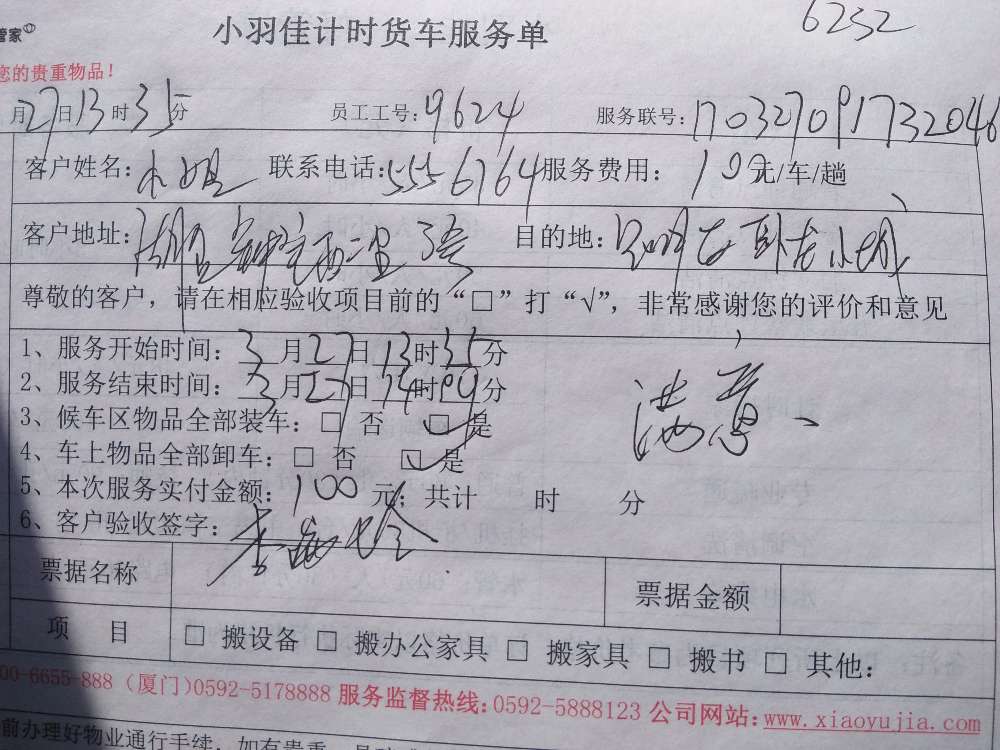 管家 小羽佳计时货车服务单 6232
您的贵重物品！
月27日13时35分 员工工号：9624 服务联号：1703270917732046
客户姓名：小姐 联系电话：5556764 服务费用：100元/车/趟
客户地址： 目的地：
尊敬的客户，请在相应验收项目前的“□”打“√”，非常感谢您的评价和意见
1、服务开始时间：3月27日13时35分
2、服务结束时间：3月27日14时09分
满意
3、候车区物品全部装车：□ 否 ☑ 是
4、车上物品全部卸车：□ 否 ☑ 是
5、本次服务实付金额：100元；共计 时 分
6、客户验收签字：
票据名称 票据金额
项 目 □ 搬设备 □ 搬办公家具 □ 搬家具 □ 搬书 □ 其他：
00-6655-888（厦门）0592-5178888 服务监督热线：0592-5888123 公司网站：www.xiaoyujia.com
前办理好物业通行手续，如有贵重